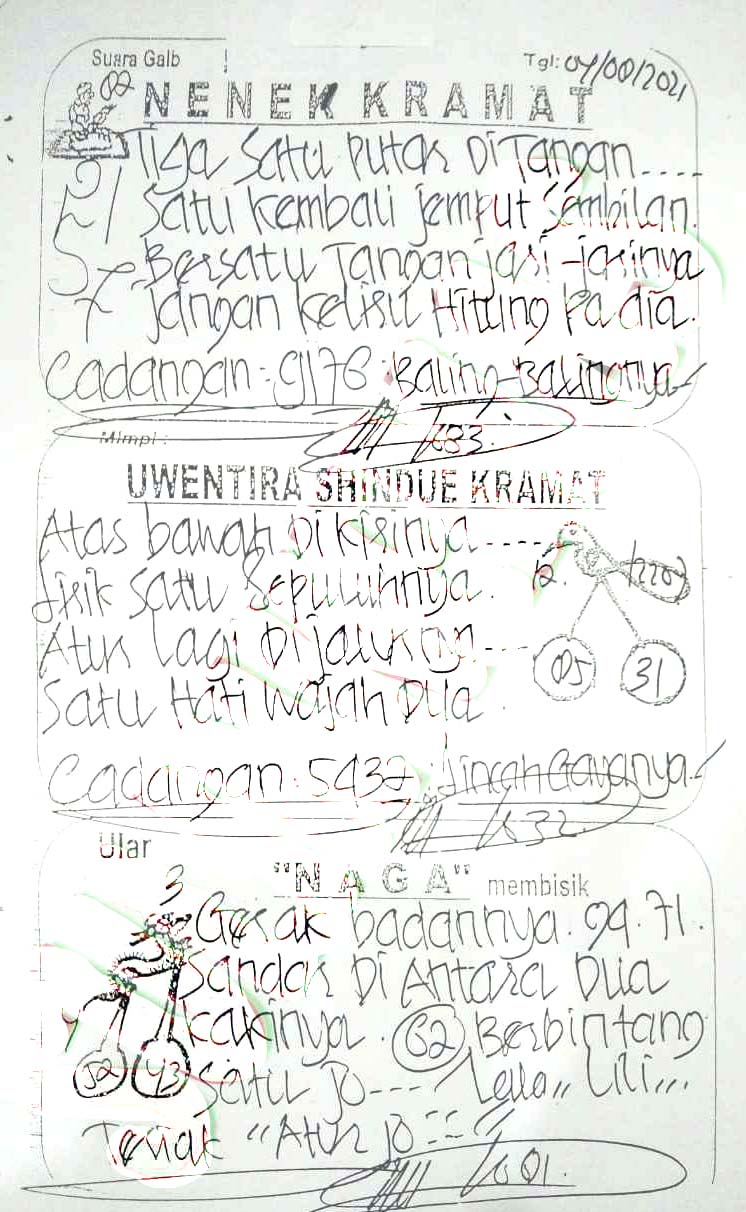 Suara Galb
Tgl: 04/00/2021
02
NENEK KRAMAT
Tiga Satu Putar DiTangan....
Satu Kembali Jemput Sembilan.
Bersatu Tangan jari-jarinya
Jangan Keliru Hitung Pa dia.
Cadangan: 9176: Baling-Balingnya
Mimpi:
UWENTIRA SHINDUE KRAMAT
Atas bawah Dikirinya....
lirik satu Sepuluhnya.
12.
Atur Lagi Di jalurnya...
05 31
Satu Hati wajah Dua.
Cadangan: 5432: lincah Gayanya.
632
Ular
"NAGA" membisik
3
Gerak badannya. 99.71.
Sandar Di Antara Dua
Kakinya. 62 Berbintang
52 43
Satu jo--- "Lala,, Lili,,,
Teriak "Atur jo